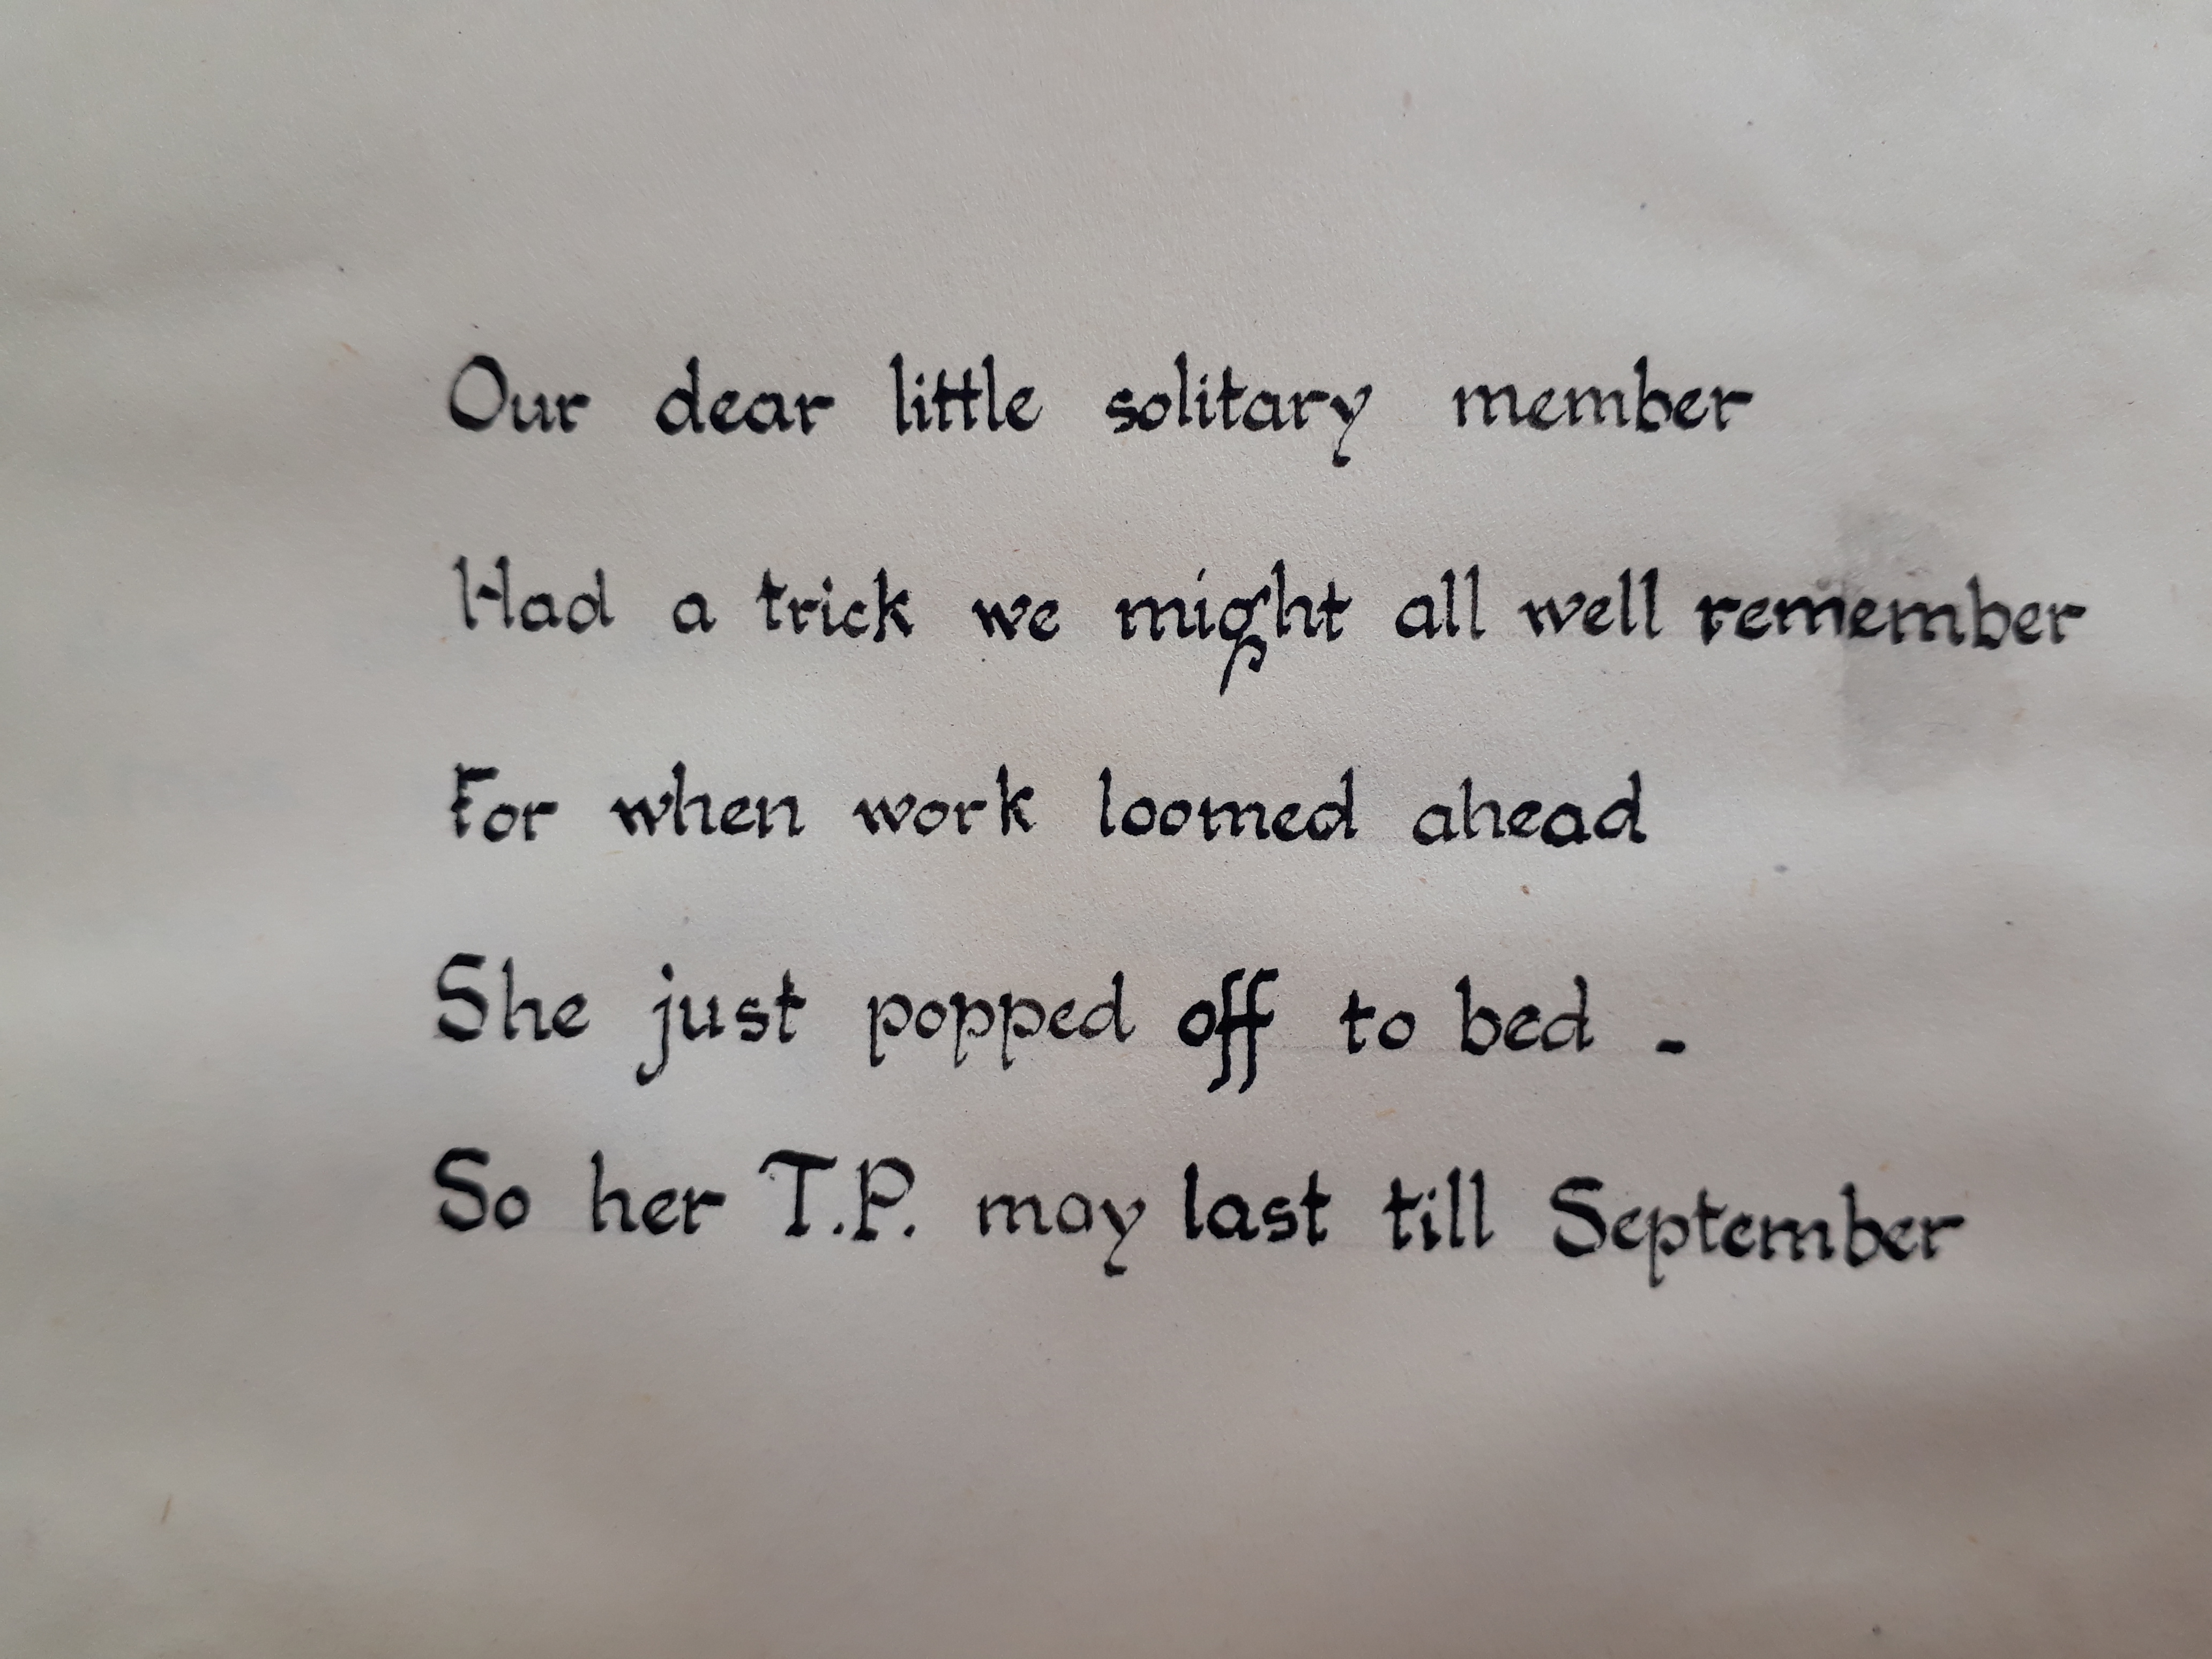 Our dear little solitary member
Had a trick we might all well remember
For when work loomed ahead
She just popped off to bed -
So her T.P. may last till September